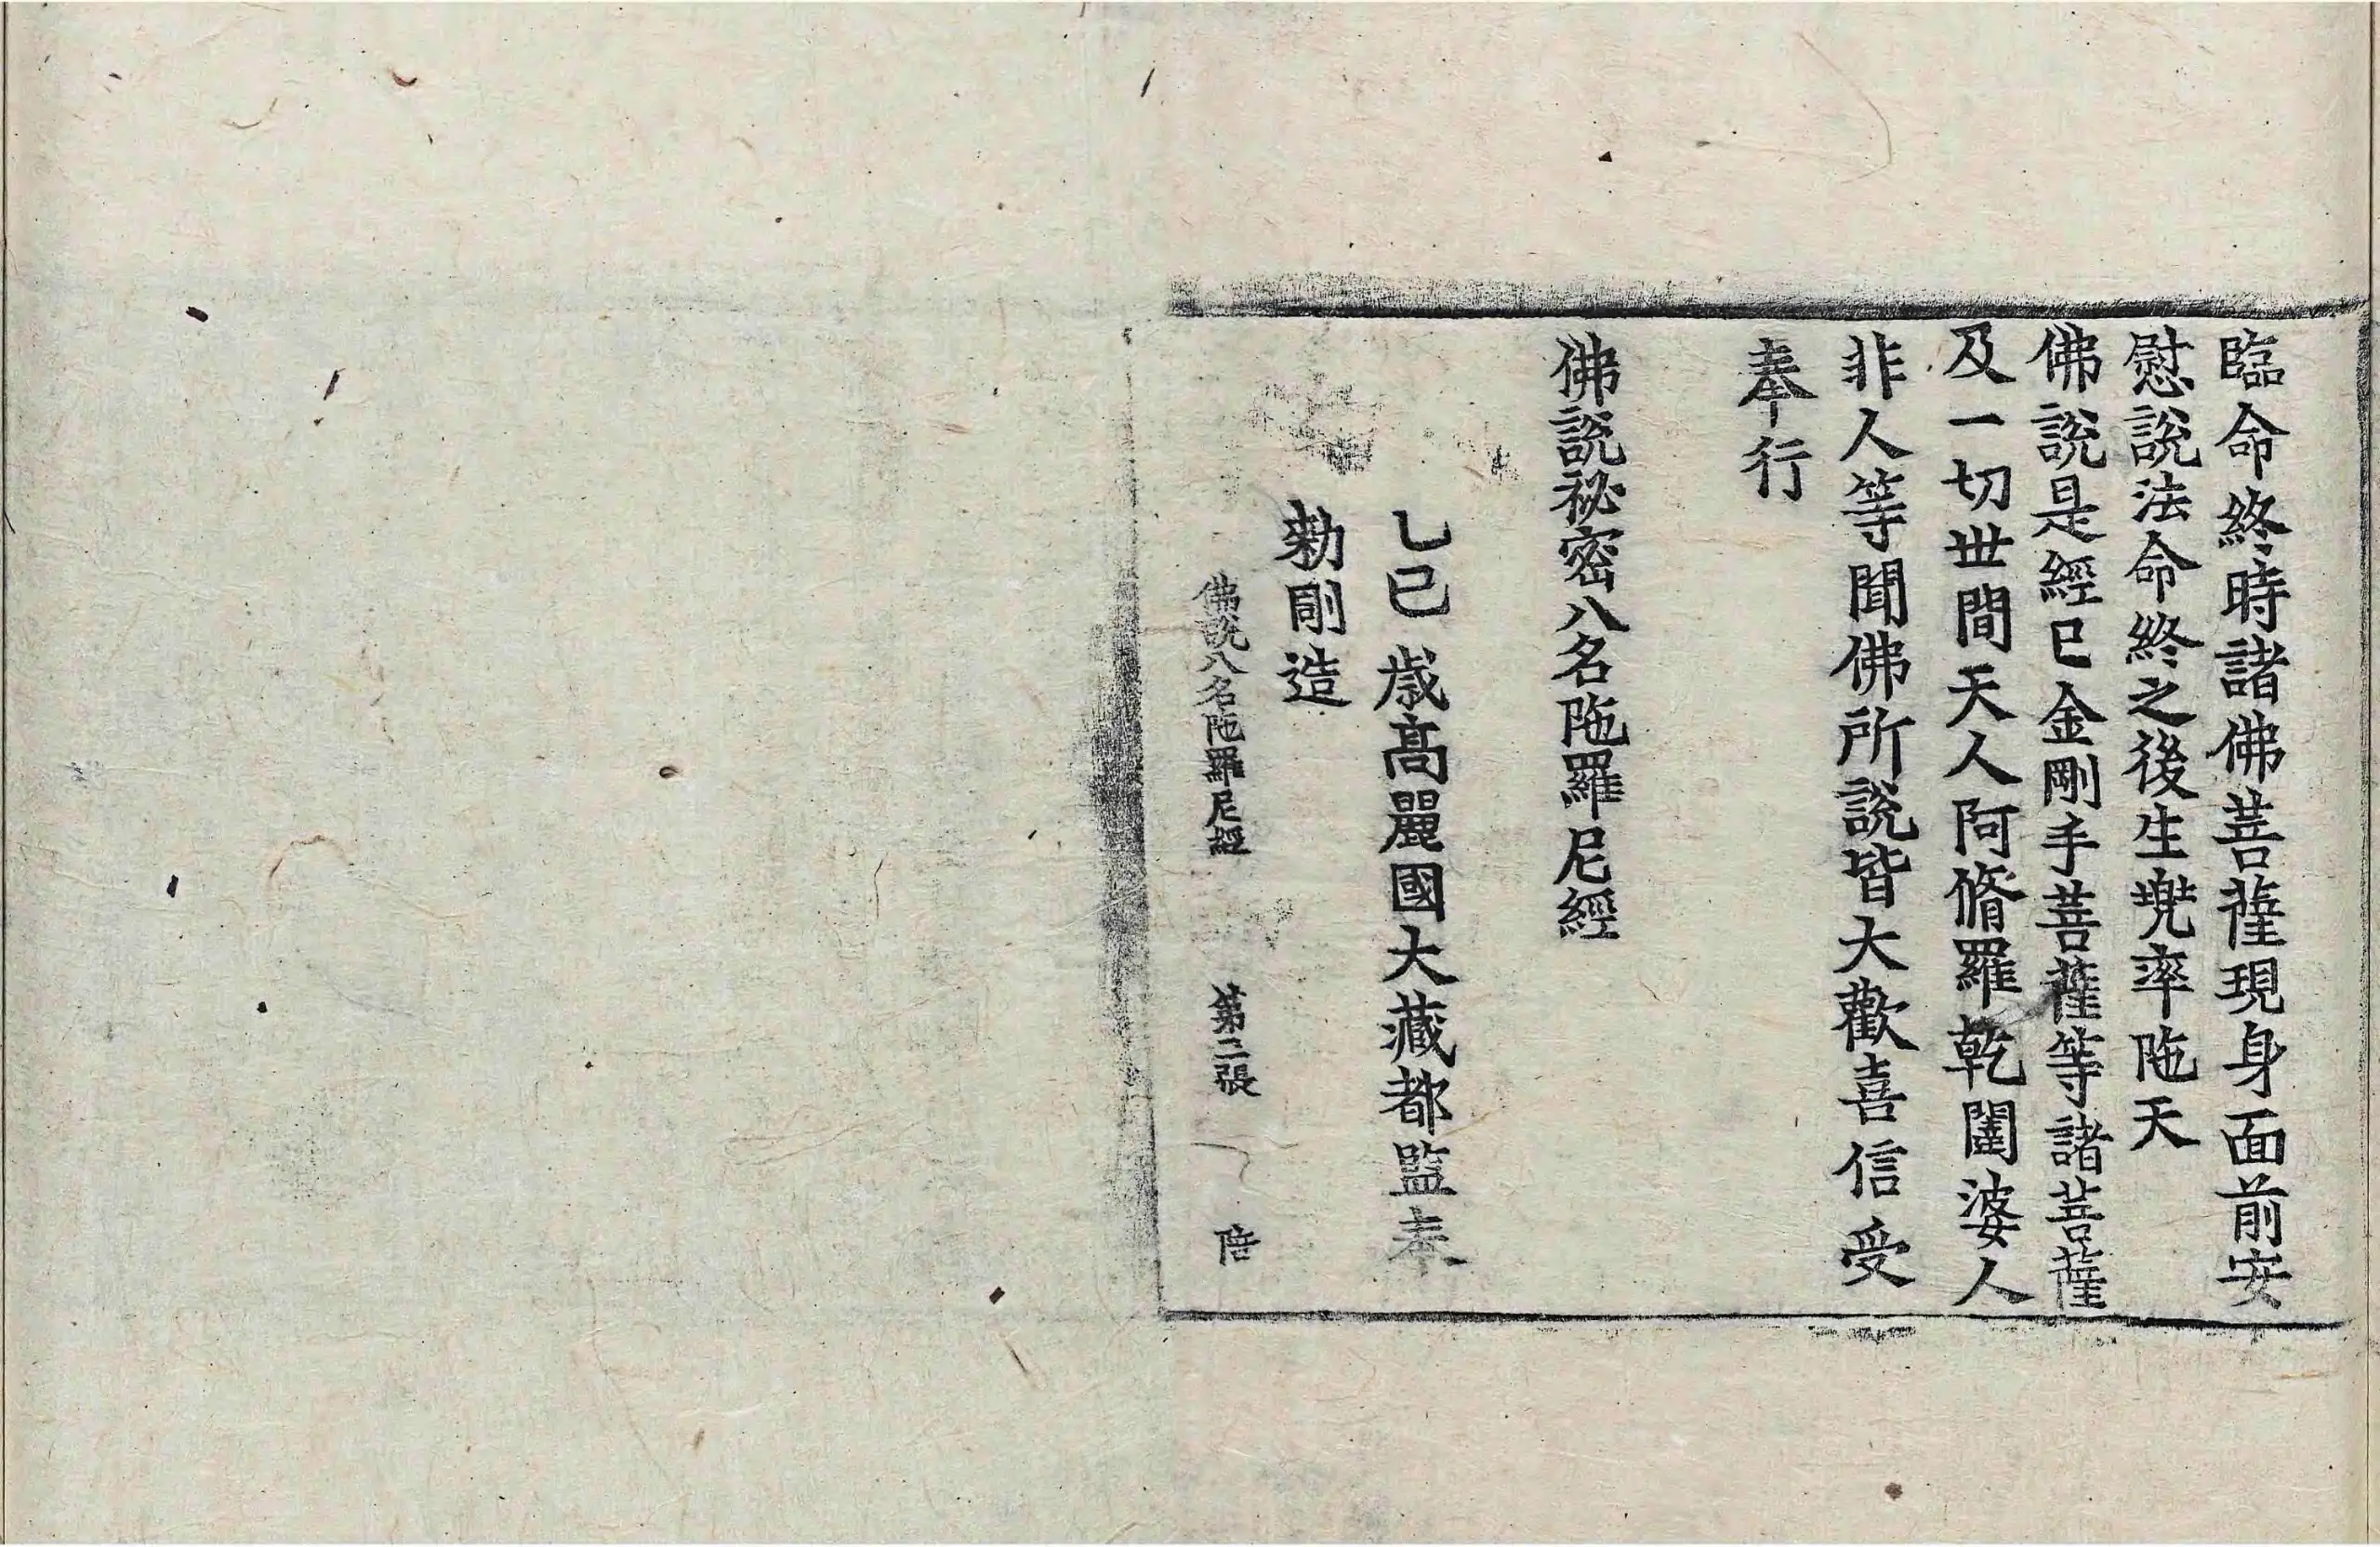 臨命終時諸佛菩薩現身面前安
慰說法命終之後生兠率陁天
佛說是經已金剛手菩薩等諸菩薩
及一切世間天人阿脩羅乾闥婆人
非人等聞佛所說皆大歡喜信受
奉行
佛說祕密八名陁羅尼經
乙巳歲高麗國大藏都監奉
勑剛造
佛說八名陁羅尼經 第三張 陪